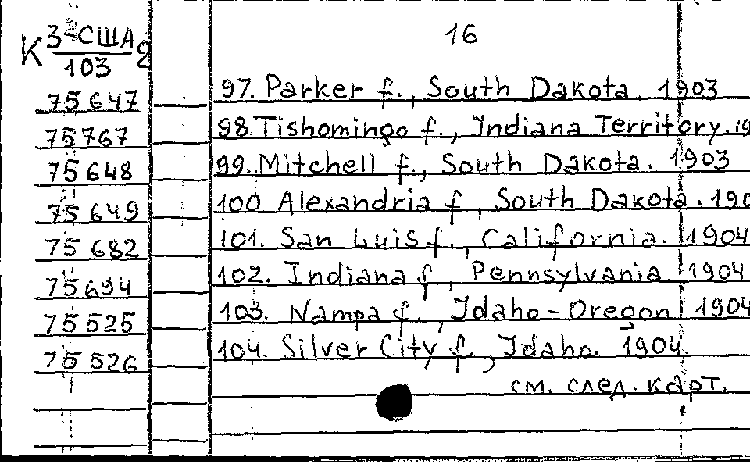 К 3-США/103 16
75647 97. Parker f., South Dakota. 1903
75767 98. Tishomingo f., Indiana Territory. 19
75648 99. Mitchell f., South Dakota. 1903
75649 100 Alexandria f, South Dakota. 190
75682 101. San Luis f., California. 1904
75694 102. Indiana f, Pennsylvania 1904
75525 103. Nampa f., Idaho-Oregon 1904
75526 104. Silver City f., Idaho. 1904
см. след. карт.